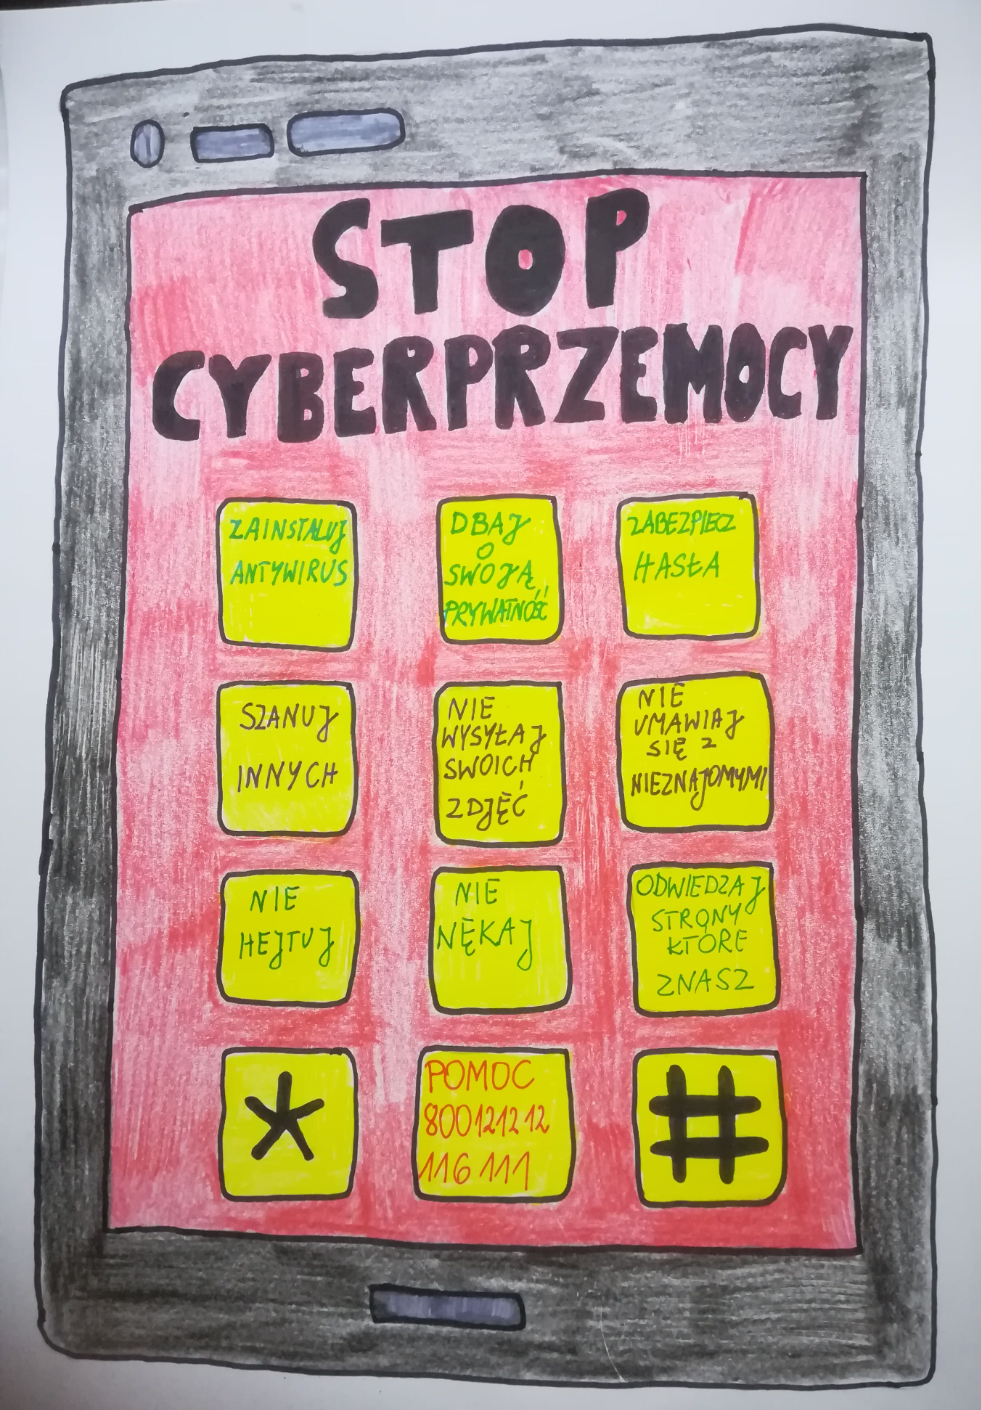 STOP
CYBERPRZEMOCY
ZAINSTALUJ
ANTYWIRUS
DBAJ
O
SWOJĄ
PRYWATNOŚĆ
ZABEZPIECZ
HASŁA
SZANUJ
INNYCH
NIE
WYSYŁAJ
SWOICH
ZDJĘĆ
NIE
UMAWIAJ
SIĘ Z
NIEZNAJOMYMI
NIE
HEJTUJ
NIE
NĘKAJ
ODWIEDZAJ
STRONY
KTÓRE
ZNASZ
*
POMOC
800 12 12 12
116 111
#